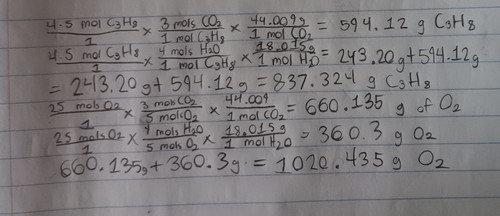 4.5 mol C3H8/1 × 3 mols CO2/1 mol C3H8 × 44.009g/1 mol CO2 = 594.12 g C3H8
4.5 mol C3H8/1 × 4 mols H2O/1 mol C3H8 × 18.015g/1 mol H2O = 243.20g+594.12g
= 243.20g + 594.12g = 837.324 g C3H8
25 mols O2/1 × 3 mols CO2/5 mols O2 × 44.009/1 mol CO2 = 660.135 g of O2
25 mols O2/1 × 4 mols H2O/5 mols O2 × 18.015g/1 mol H2O = 360.3 g O2
660.135g + 360.3g = 1020.435 g O2